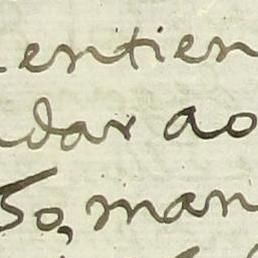 entien
dar ao
so, man